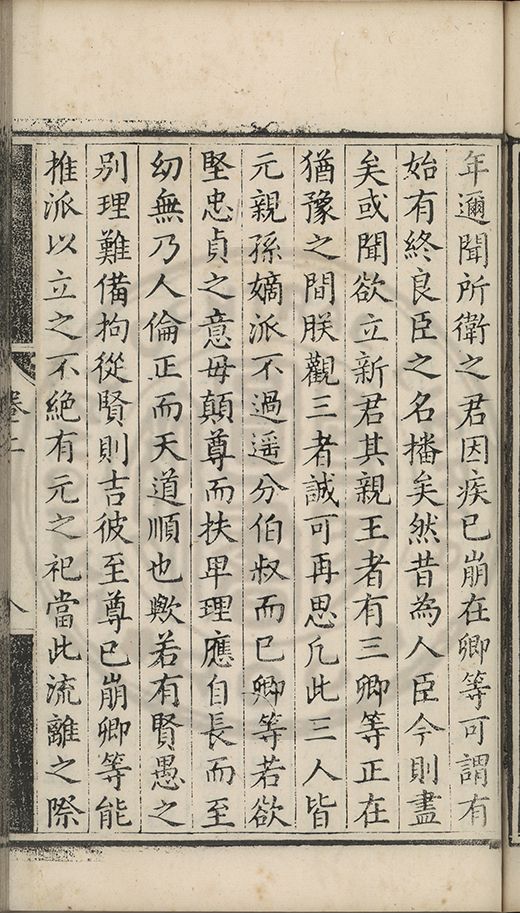 年邇聞所衛之君因疾已崩在卿等可謂有
始有終良臣之名播矣然昔為人臣今則盡
矣或聞欲立新君其親王者有三卿等正在
猶豫之間朕觀三者誠可再思凢此三人皆
元親孫嫡派不過遥分伯叔而已卿等若欲
堅忠貞之意毋顛尊而扶卑理應自長而至
幼無乃人倫正而天道順也歟若有賢愚之
别理難備拘從賢則吉彼至尊已崩卿等能
推派以立之不絶有元之祀當此流離之際
卷二
八